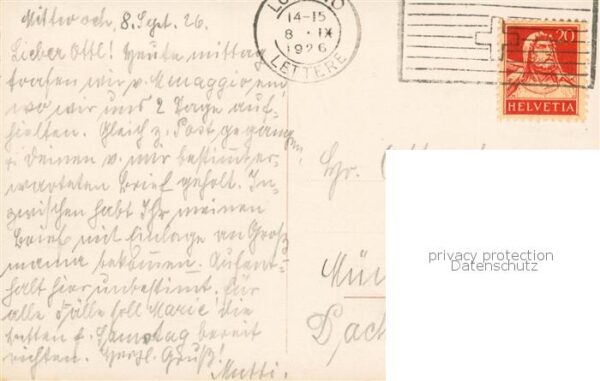 Mittwoch, 8. Sept. 26.
Lieber Ottl! Heute mittag
trafen wir v. Menaggio ein,
wo wir uns 2 Tage auf-
hielten. Gleich z. Post gegangen
+ Deinen v. mir bestimmt er-
warteten Brief geholt. In-
zwischen habt Ihr meinen
Brief mit Einlage an Groß
mama bekommen. Aufent-
halt hier unbestimmt. Für
alle Fälle soll Marie die
Betten f. Samstag bereit
richten. Herzl. Gruß!
Mutti.
14-15
8 · IX
1926
LETTERE
20
HELVETIA
Hr.
Mün
Dach
privacy protection
Datenschutz